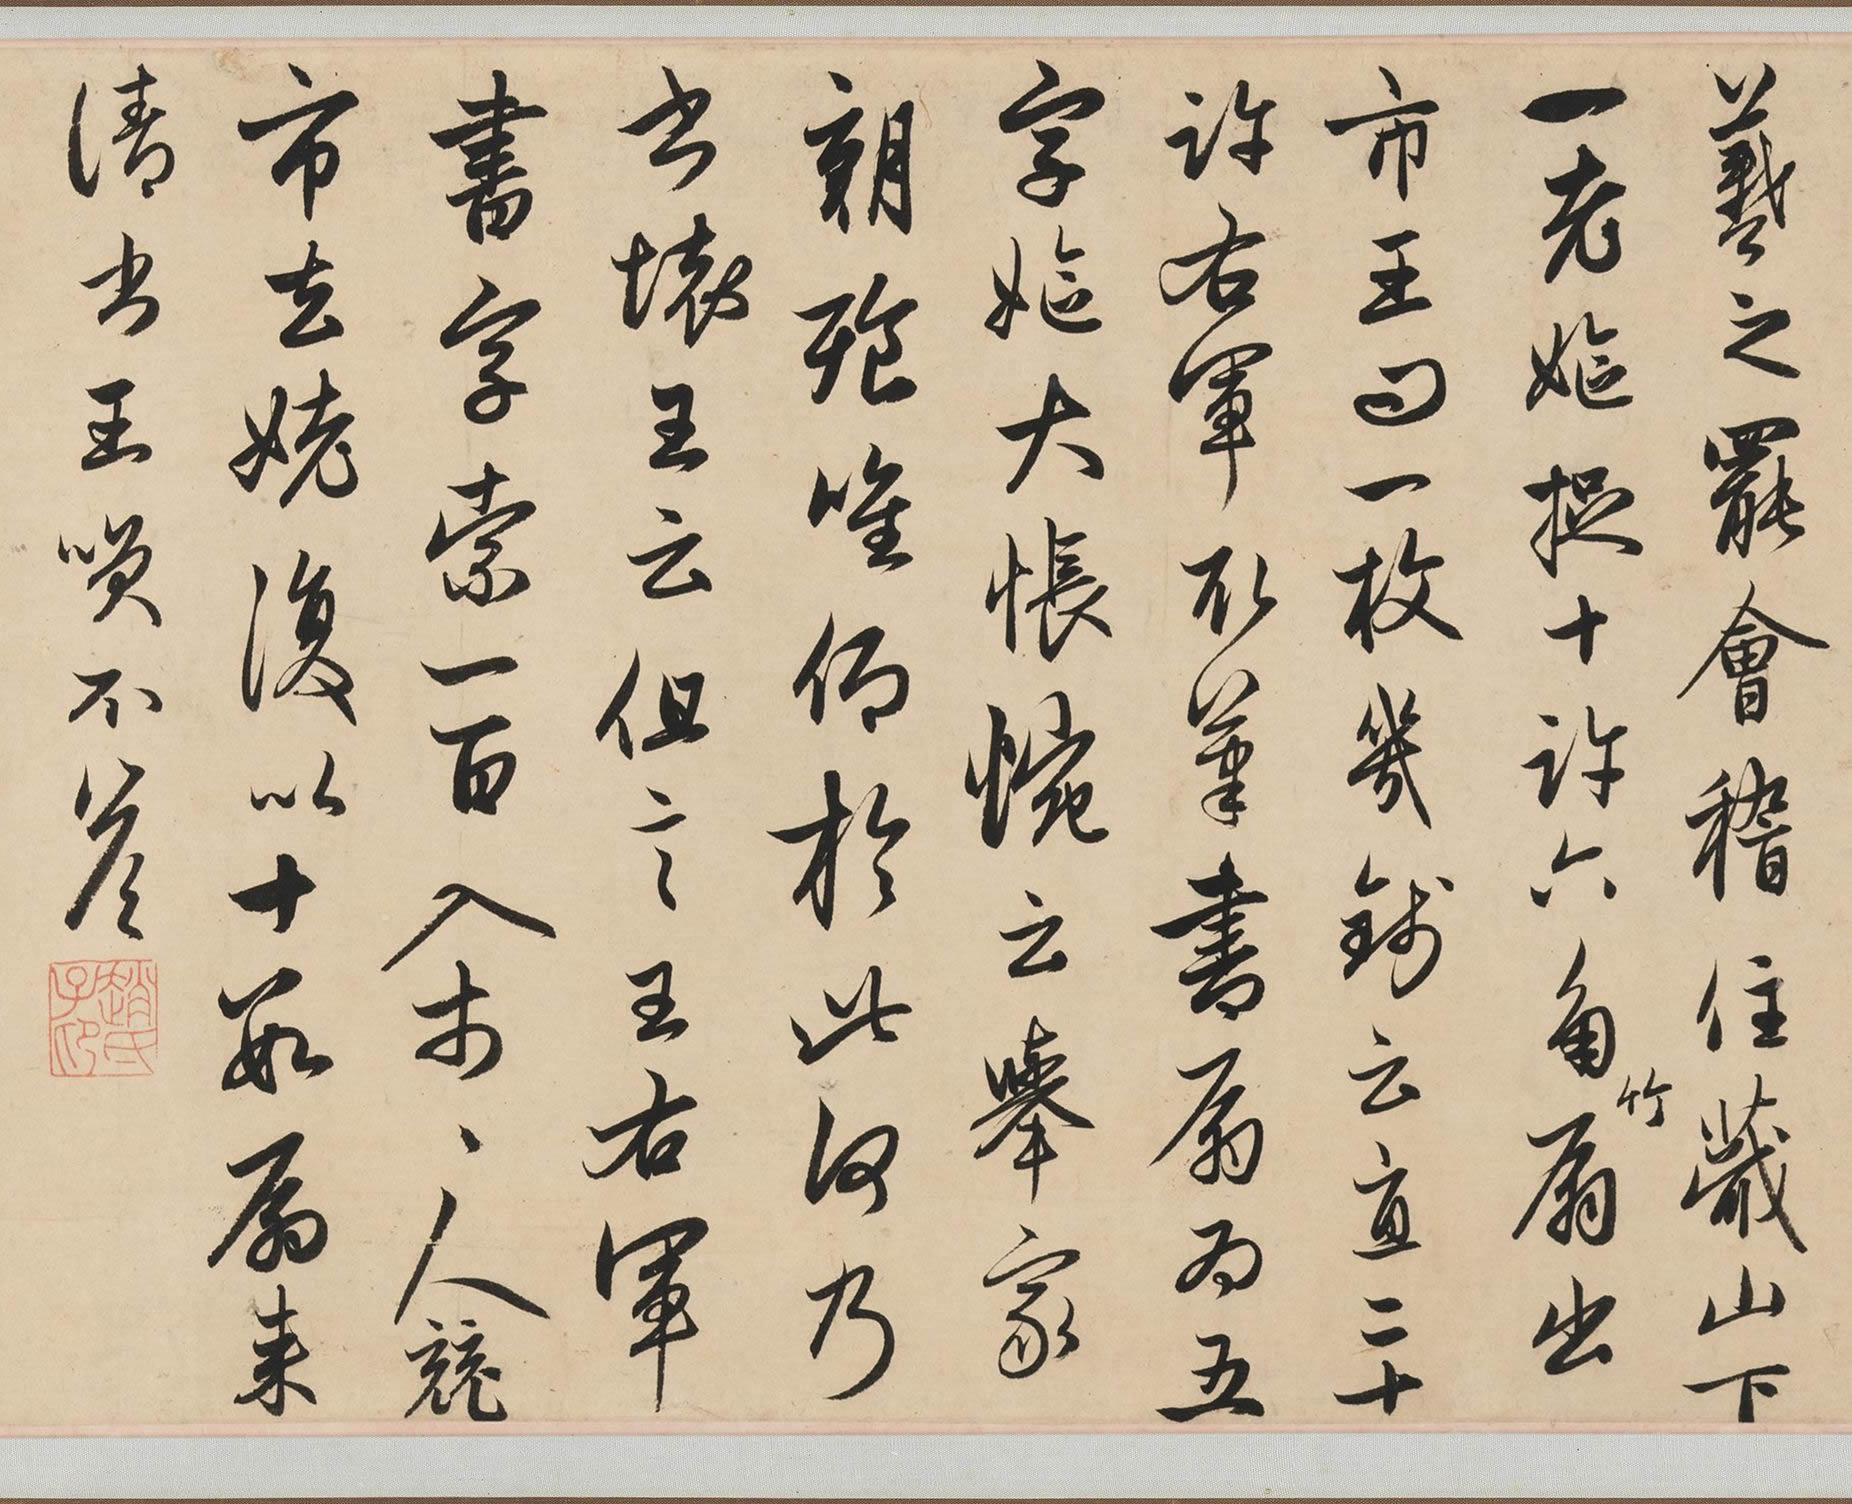 羲之罷會稽住蕺山下
一老嫗捉十許六角竹扇出
市王問一枚幾錢云直二十
許右軍取筆書扇為五
字嫗大悵惋云舉家
朝飱唯仰於此何乃
書壞王云但言王右軍
書字索一百入市〻人競
市去姥復以十數扇來
請書王笑不答
趙氏子印